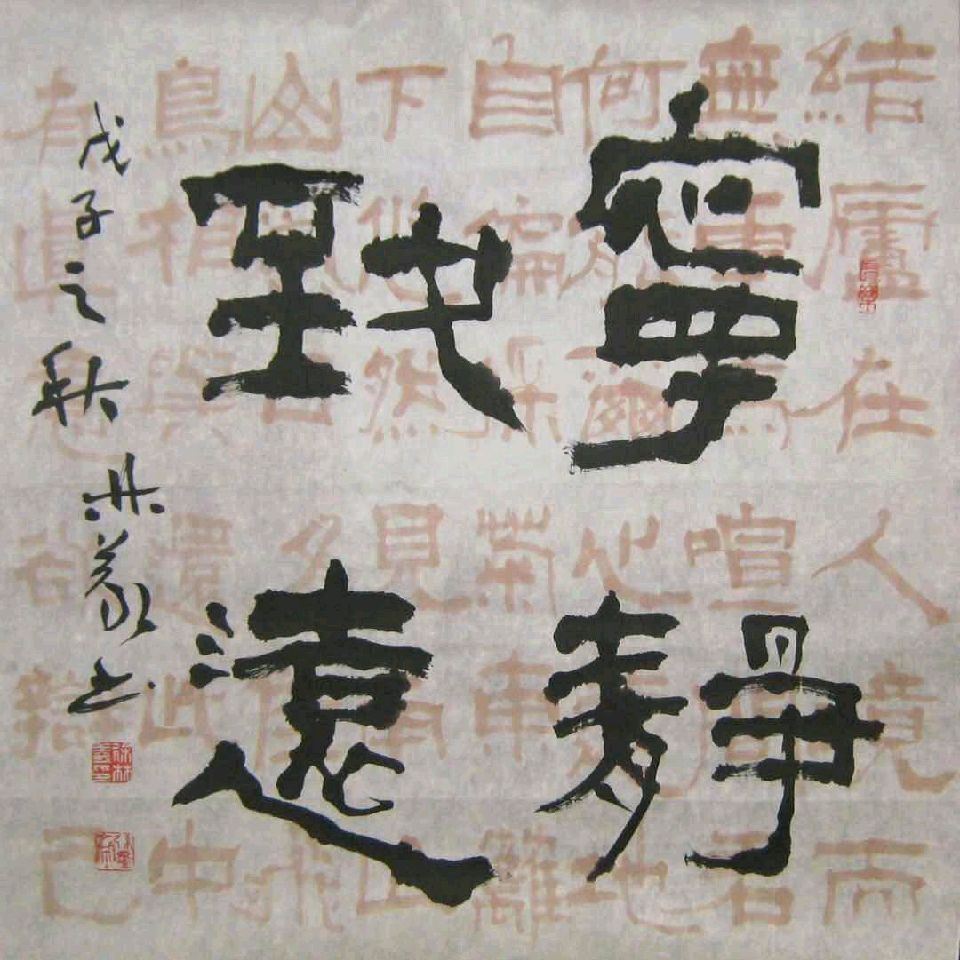 寧靜
致遠
戊子之秋林義书
結廬在人境而
無車馬喧問君
何能爾心遠地
自偏採菊東籬
下悠然見南山
山氣日夕佳飛
鳥相與還此中
有眞意欲辯己